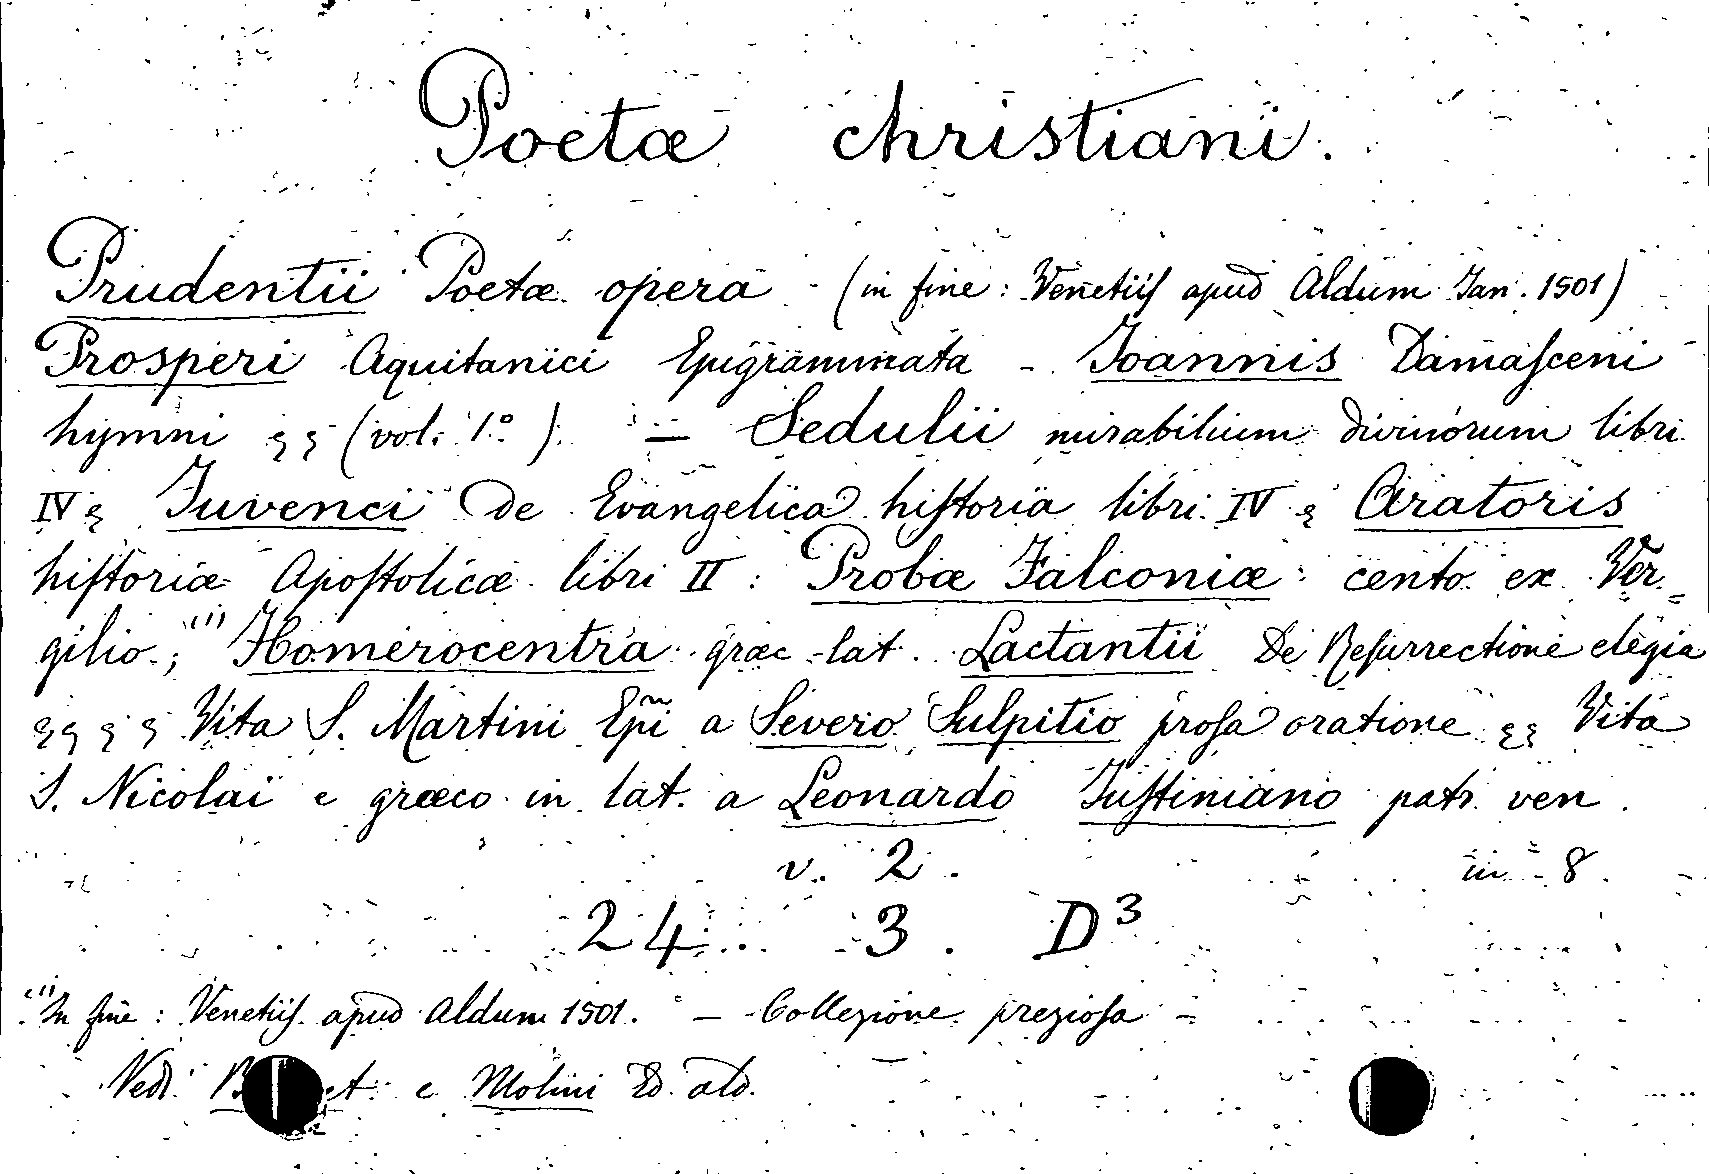 Poetæ christiani.
Prudentii Poetæ opera - (in fine: Venetiis apud Aldum Jan. 1501)
Prosperi Aquitanici Epigrammata - Joannis Damasceni
hymni && (vol. 1º) — Sedulii mirabilium divinorum libri
IV & Juvenci de Evangelica historia libri IV & Aratoris
historiæ Apostolicæ libri II: Probæ Falconiæ: cento ex Ver=
gilio.;(1) Homerocentra græc-lat. Lactantii De Resurrectione elegia
&& & & Vita S. Martini Epi a Severo Sulpitio prosa oratione && Vita
S. Nicolai e græco in lat. a Leonardo Justiniano patr. ven.
v. 2. in 8.
24. 3. D3
(1) In fine: Venetiis apud Aldum 1501. — Collezione preziosa -
Vedi e Molini Ed. ald.